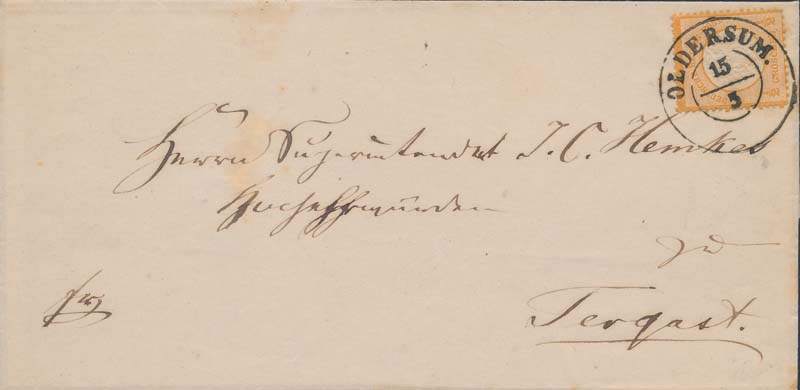 OLDERSUM.
15
5
Herrn Superintendent J. C. Hemkes
Hochehrwürden
zu
Tergast.
frei